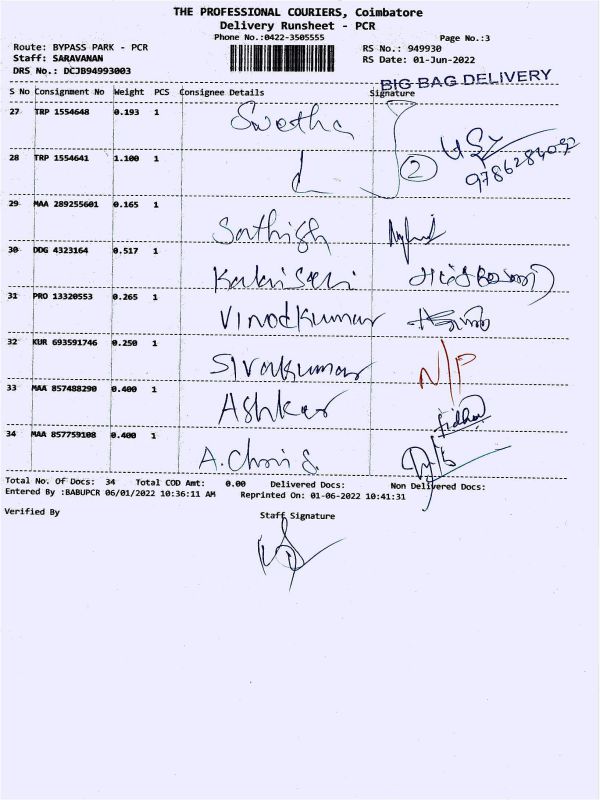 THE PROFESSIONAL COURIERS, Coimbatore
Delivery Runsheet - PCR
Phone No.:0422-3505555
Page No.:3
Route: BYPASS PARK - PCR
RS No.: 949930
Staff: SARAVANAN
RS Date: 01-Jun-2022
DRS No.: DCJB94993003
BIG BAG DELIVERY
S No Consignment No Weight PCS Consignee Details Signature
27 TRP 1554648 0.193 1 Swetha
28 TRP 1554641 1.100 1 2
9786284092
29 MAA 289255601 0.165 1 Sathish
30 DDG 4323164 0.517 1
31 PRO 13320553 0.265 1 Vinodkumar
32 KUR 693591746 0.250 1 Sivakumar N/P
33 MAA 857488290 0.400 1 Ashkar
34 MAA 857759108 0.400 1 A.
Total No. Of Docs: 34 Total COD Amt: 0.00 Delivered Docs: Non Delivered Docs:
Entered By :BABUPCR 06/01/2022 10:36:11 AM Reprinted On: 01-06-2022 10:41:31
Verified By Staff Signature